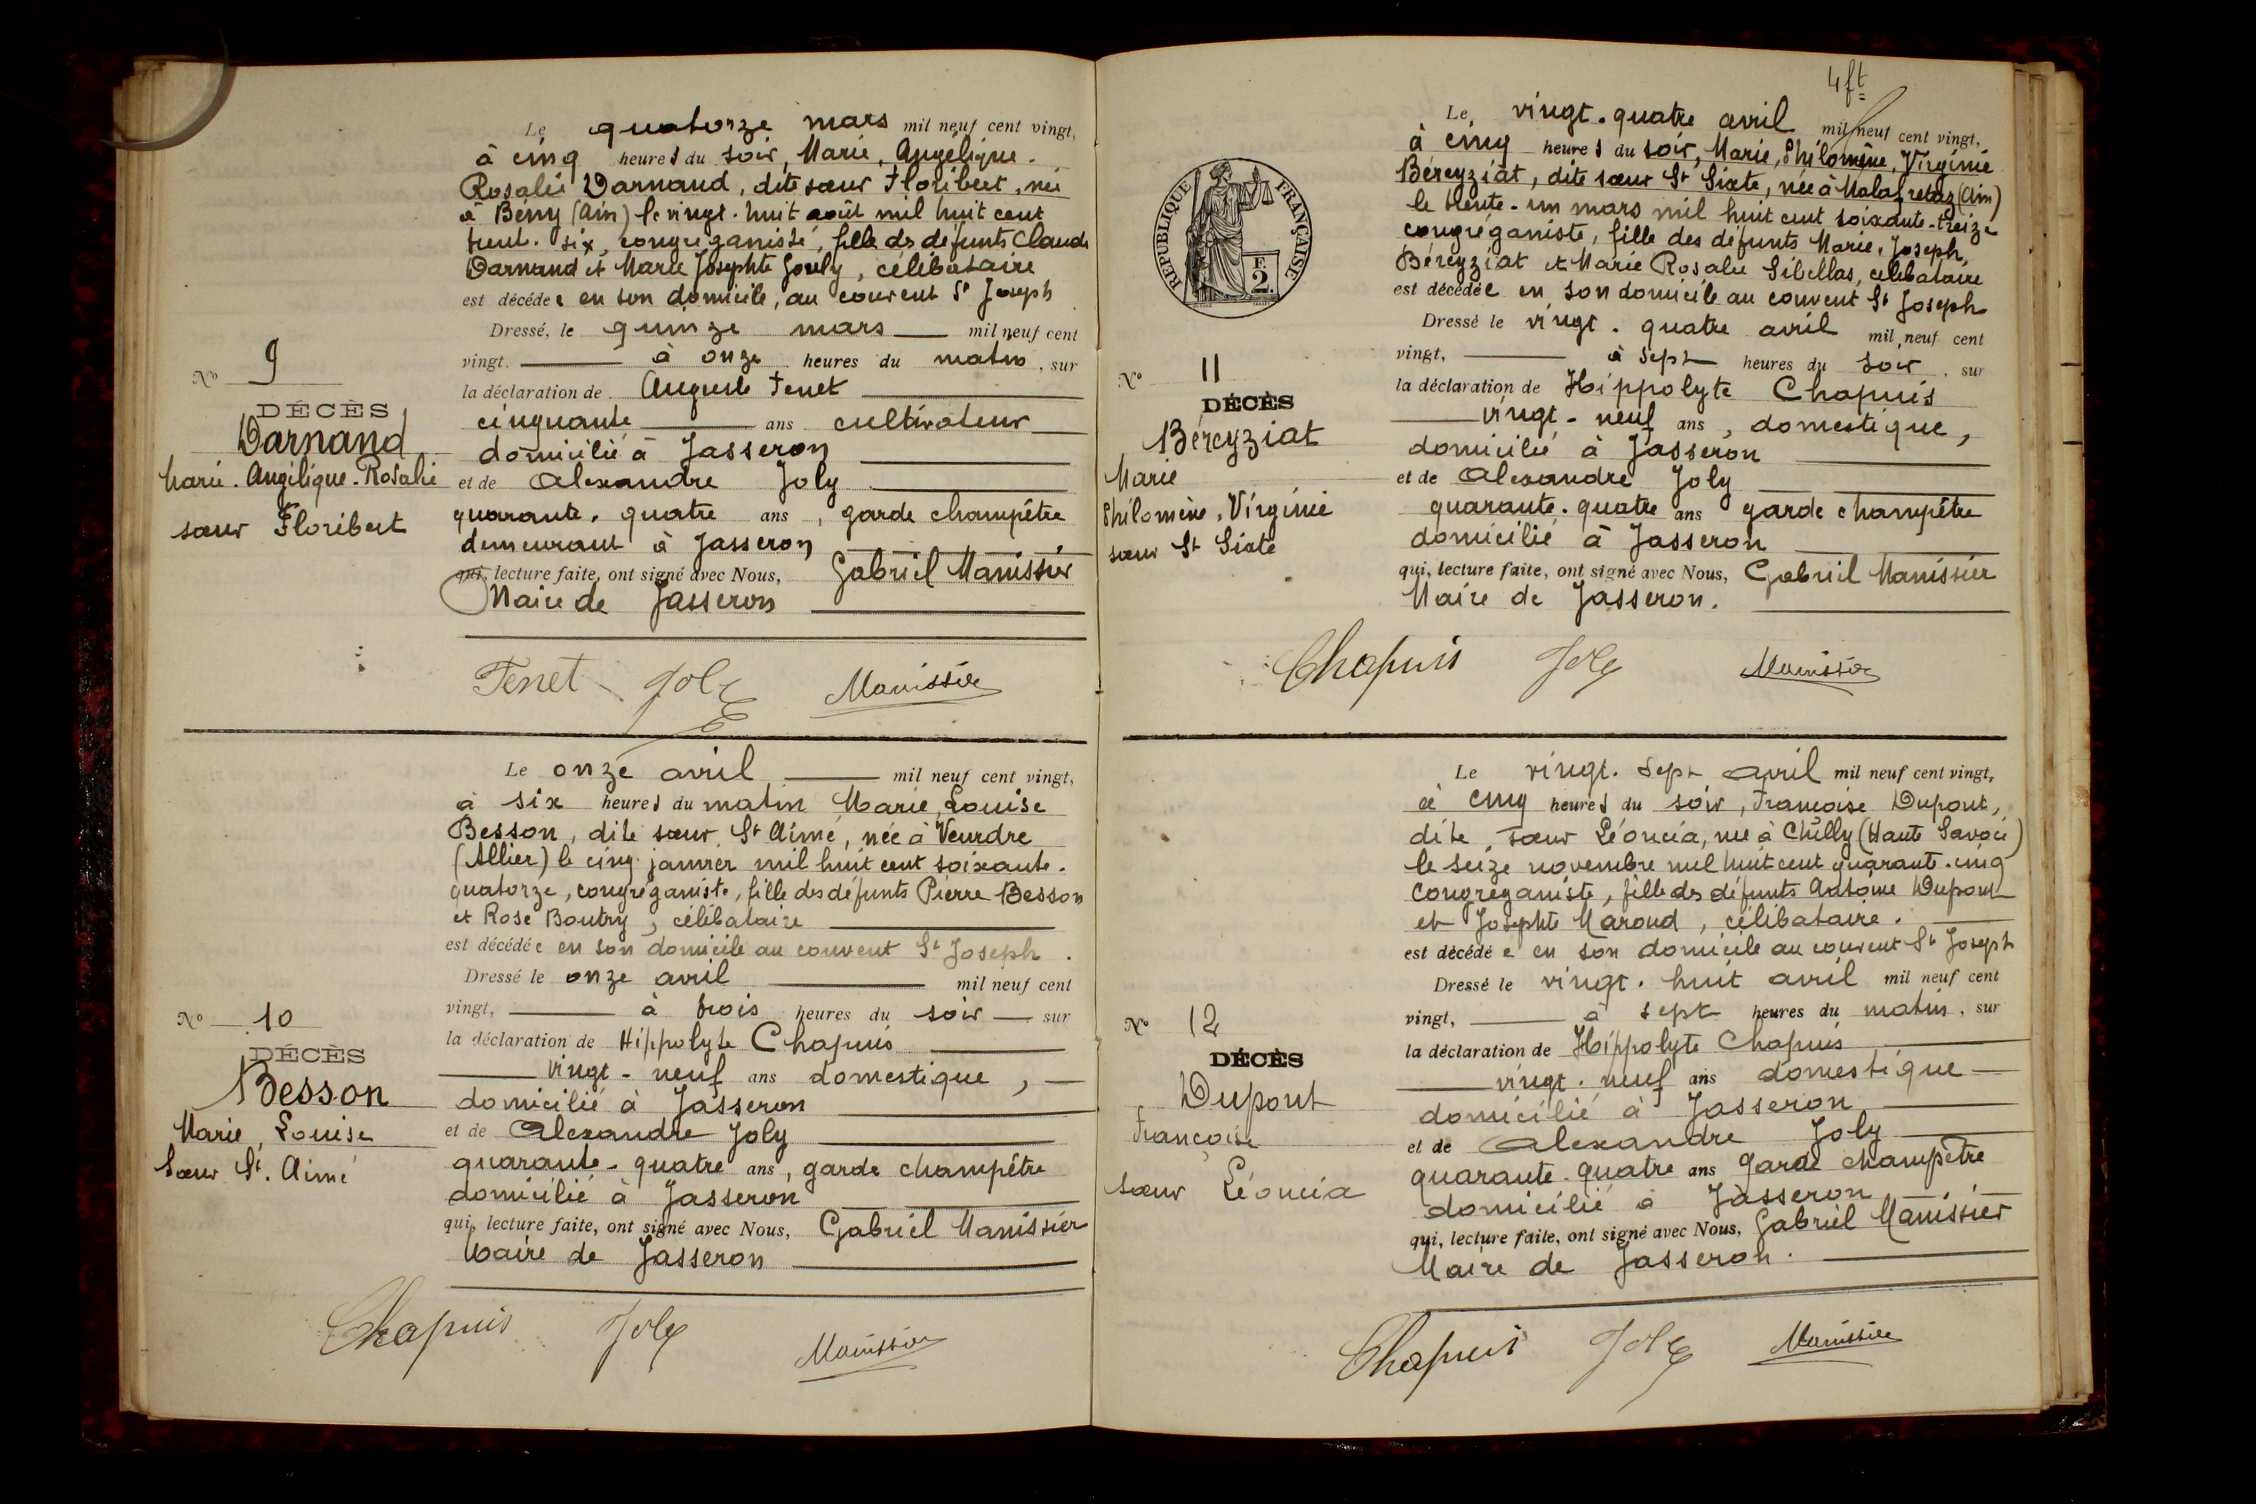 Le quatorze mars mil neuf cent vingt,
à cinq heures du soir, Marie, Angélique.
Rosalie Darnand, dite sœur Floribert, née
à Bény (Ain) le vingt-huit août mil huit cent
trente-six, congréganiste, fille des défunts Claude
Darnand et Marie Josephte Gouly, célibataire
est décédée en son domicile, au couvent St Joseph
Dressé, le quinze mars mil neuf cent
vingt. à onze heures du matin, sur
la déclaration de Auguste Fenet
cinquante ans cultivateur
domicilié à Jasseron
et de Alexandre Joly
quarante-quatre ans, garde champêtre
demeurant à Jasseron
qui, lecture faite, ont signé avec Nous, Gabriel Manissier
Maire de Jasseron
No 9
DÉCÈS
Darnand
Marie-Angélique-Rosalie
sœur Floribert
Fenet Joly Manissier
Le onze avril mil neuf cent vingt,
à six heures du matin Marie, Louise
Besson, dite sœur St Aimé, née à Veurdre
(Allier) le cinq janvier mil huit cent soixante-
quatorze, congréganiste, fille des défunts Pierre Besson
et Rose Boutry, célibataire
est décédée en son domicile au couvent St Joseph.
Dressé le onze avril mil neuf cent
vingt, à trois heures du soir sur
la déclaration de Hippolyte Chapuis
vingt-neuf ans domestique,
domicilié à Jasseron
et de Alexandre Joly
quarante-quatre ans, garde champêtre
domicilié à Jasseron
qui, lecture faite, ont signé avec Nous, Gabriel Manissier
Maire de Jasseron
No 10
DÉCÈS
Besson
Marie, Louise
Sœur St. Aimé
Chapuis Joly Manissier
4 ft
RÉPUBLIQUE FRANÇAISE
F.
2.
Le vingt-quatre avril mil neuf cent vingt,
à cinq heures du soir, Marie, Philomène, Virginie
Béreyziat, dite sœur St Sixte, née à Malafretaz (Ain)
le trente-un mars mil huit cent soixante-treize
congréganiste, fille des défunts Marie, Joseph,
Béreyziat et Marie Rosalie Sibellas, célibataire
est décédée en son domicile au couvent St Joseph
Dressé le vingt-quatre avril mil neuf cent
vingt, à sept heures du soir, sur
la déclaration de Hippolyte Chapuis
vingt-neuf ans, domestique,
domicilié à Jasseron
et de Alexandre Joly
quarante-quatre ans garde champêtre
domicilié à Jasseron
qui, lecture faite, ont signé avec Nous, Gabriel Manissier
Maire de Jasseron.
No 11
DÉCÈS
Béreyziat
Marie
Philomène, Virginie
sœur St Sixte
Chapuis Joly Manissier
Le vingt-sept avril mil neuf cent vingt,
à cinq heures du soir, Françoise Dupont,
dite sœur Léoncia, née à Chilly (Haute Savoie)
le seize novembre mil huit cent quarante-cinq
congréganiste, fille des défunts Antoine Dupont
et Josephte Maroud, célibataire.
est décédée en son domicile au couvent St Joseph
Dressé le vingt-huit avril mil neuf cent
vingt, à sept heures du matin, sur
la déclaration de Hippolyte Chapuis
vingt-neuf ans domestique
domicilié à Jasseron
et de Alexandre Joly
quarante-quatre ans garde champêtre
domicilié à Jasseron
qui, lecture faite, ont signé avec Nous, Gabriel Manissier
Maire de Jasseron.
No 12
DÉCÈS
Dupont
Françoise
sœur Léoncia
Chapuis Joly Manissier